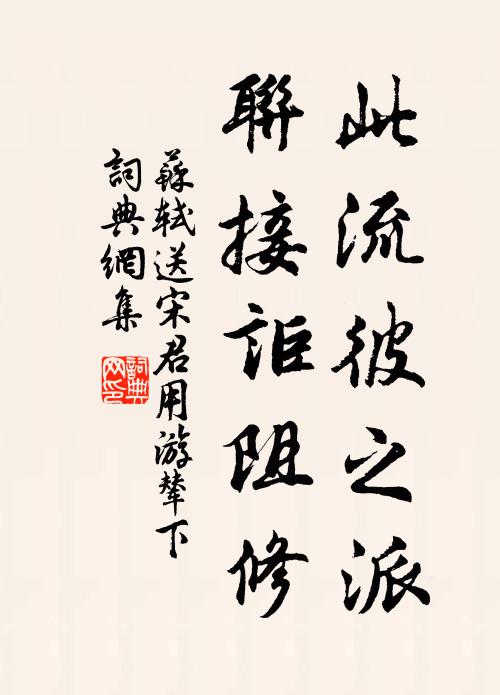 此流彼之派
聯接詎阻修
蘇軾送宋君用游輦下
詞典網集
詞典網印